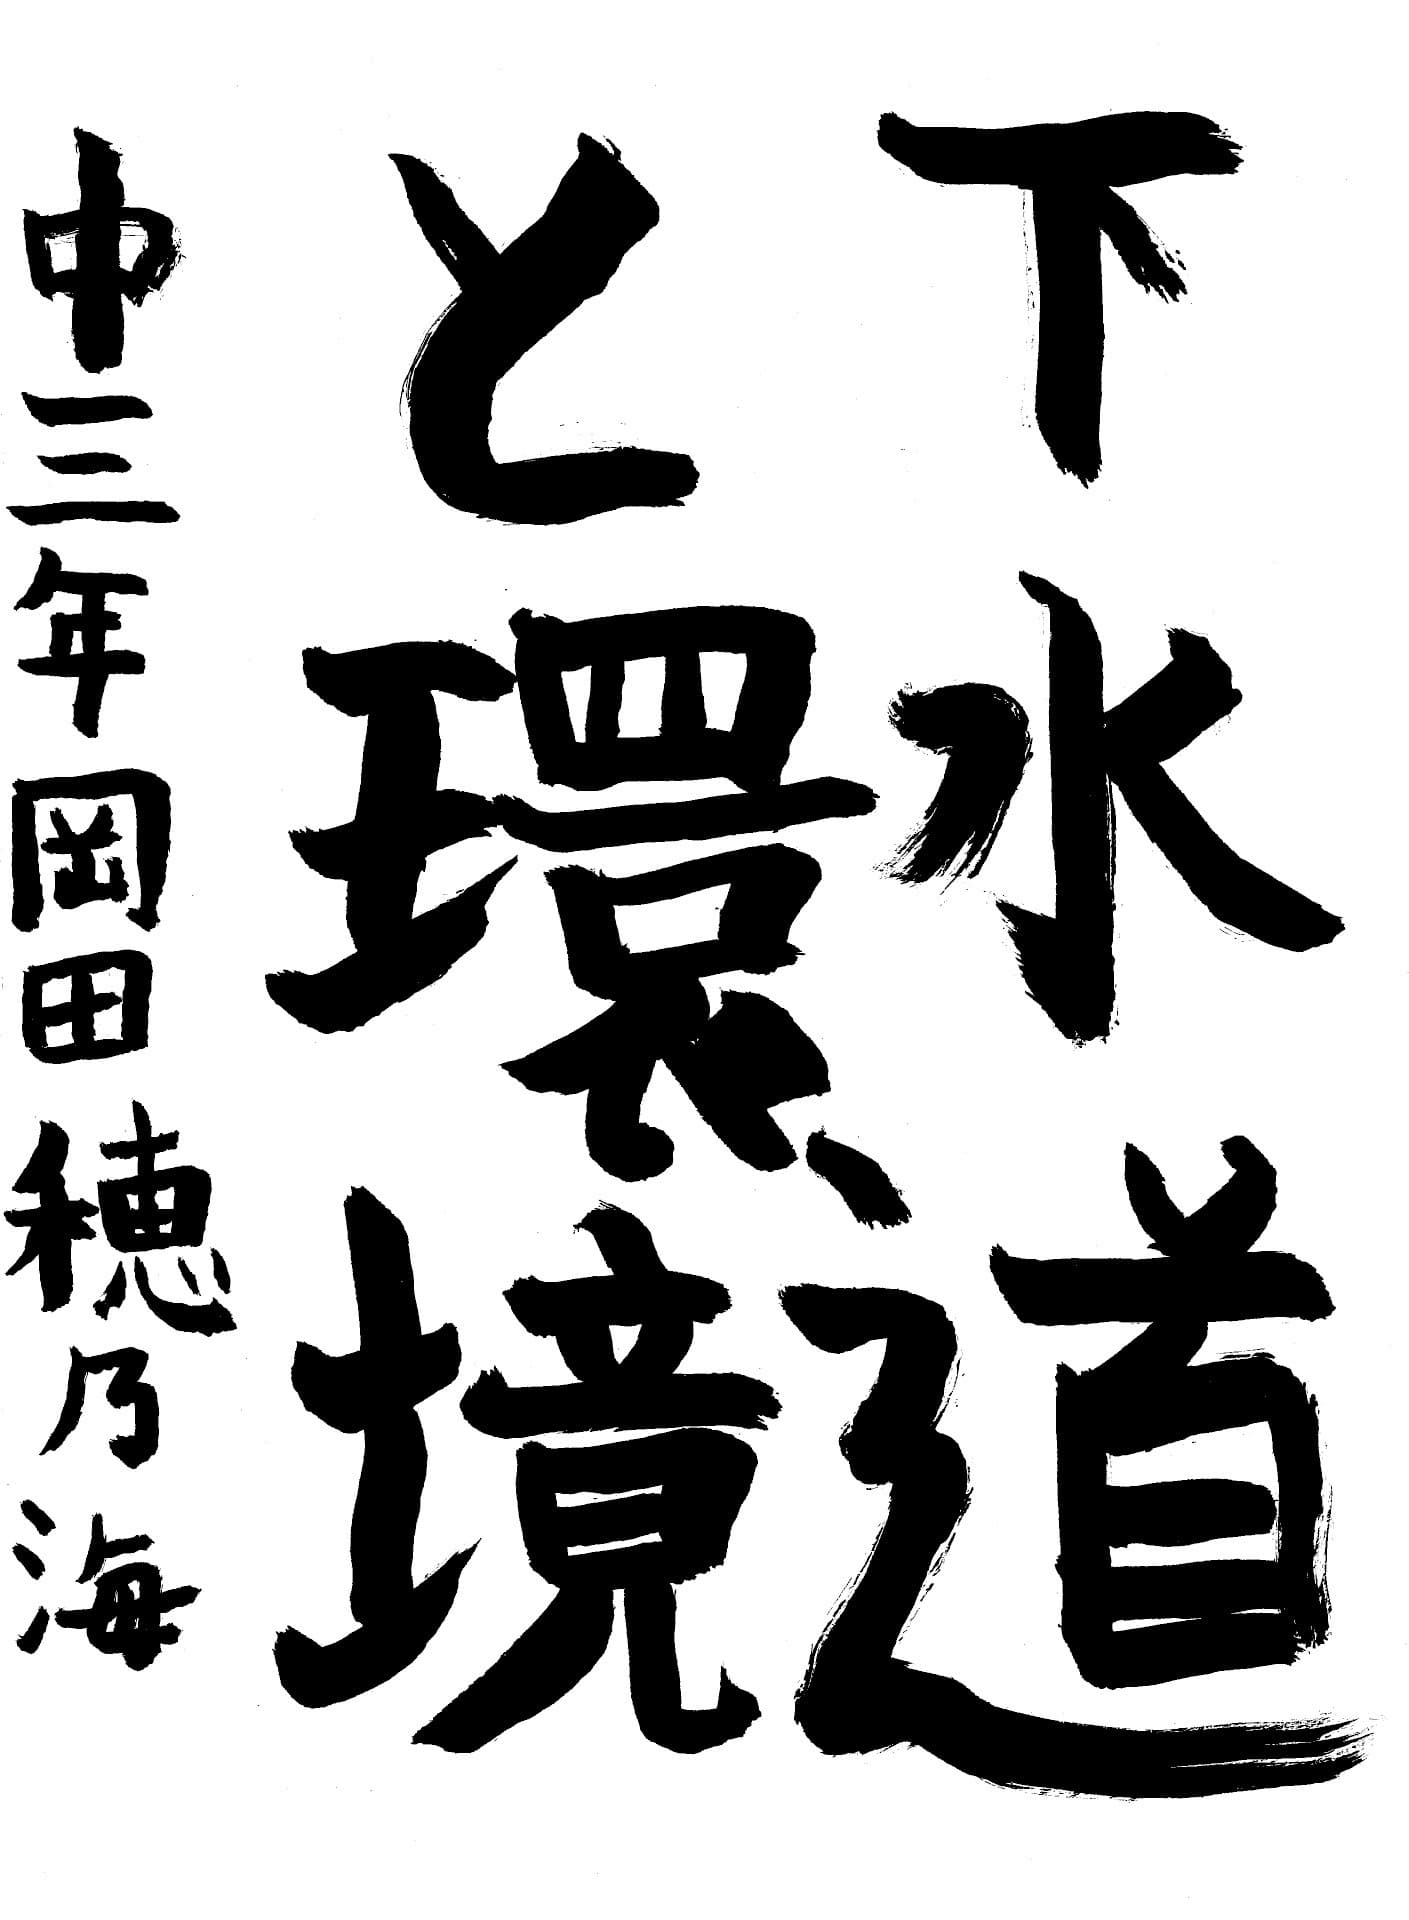 下水道
と環境
中三年 岡田穂乃海